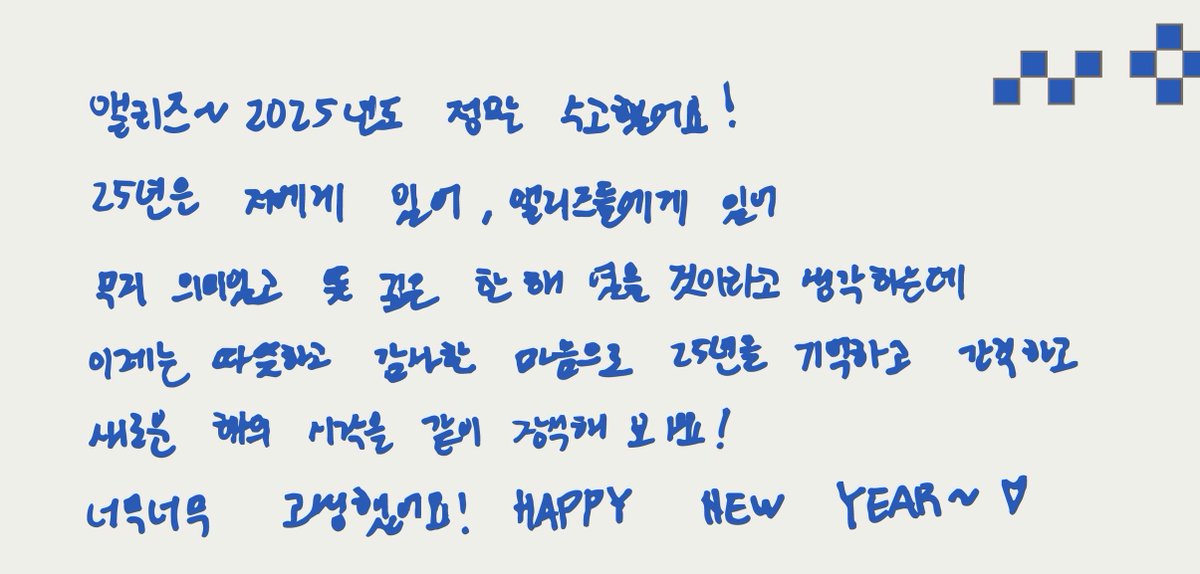 앨리즈~ 2025년도 정말 수고했어요!
25년은 저에게 있어, 앨리즈들에게 있어
무지 의미있고 뜻 깊은 한 해 였을 것이라고 생각하는데
이제는 따뜻하고 감사한 마음으로 25년을 기억하고 간직하고
새로운 해의 시작을 같이 장식해 보내요!
너무너무 고생했어요! HAPPY NEW YEAR~ ♡